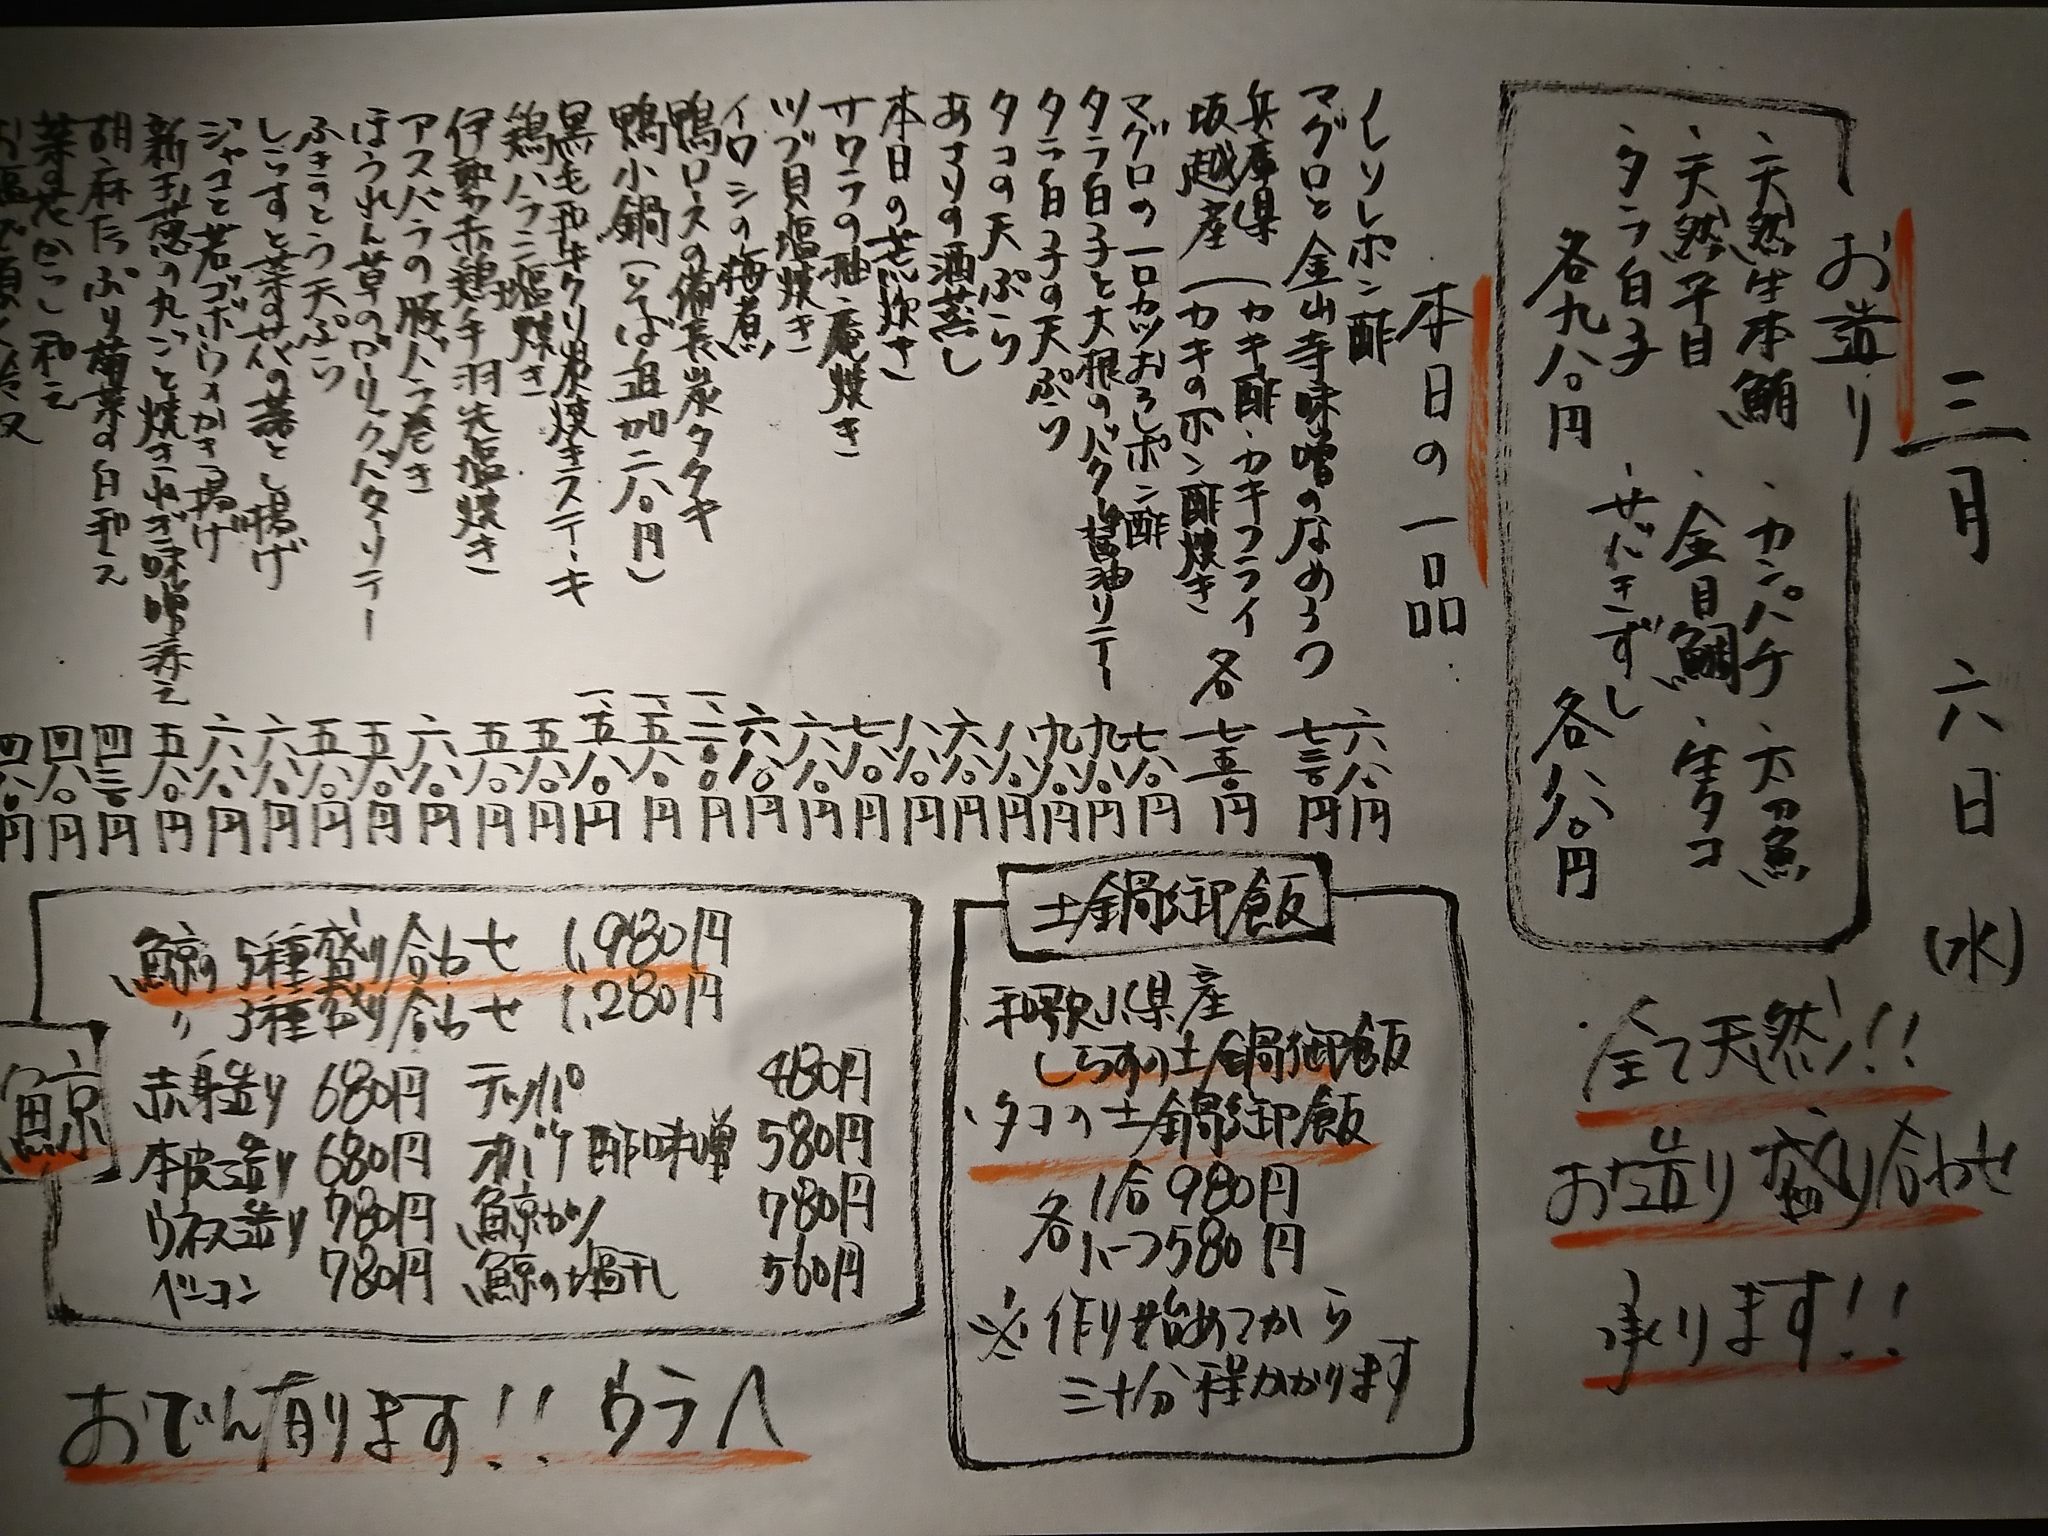 三月 六日 (水)
お造り
・天然生本鮪 ・カンパチ ・太刀魚
・天然平目 ・金目鯛 ・生タコ
・タラ白子 ・せいきずし
各九八〇円 各八八〇円
全て天然!!
お造り盛り合わせ
承ります!!
本日の一品
ノレソレポン酢 六八〇円
マグロと金山寺味噌のなめろう 七三〇円
兵庫県 (カキ酢・カキフライ
坂越産 (カキのポン酢焼き 各 七五〇円
マグロの一口カツおろしポン酢 七八〇円
タラ白子と大根のバター醤油ソテー 九八〇円
タラ白子の天ぷら 九八〇円
タコの天ぷら 八八〇円
あさりの酒蒸し 六八〇円
本日の荒炊き 八八〇円
サワラの柚庵焼き 七八〇円
ツブ貝塩焼き 六八〇円
イワシの梅煮 六八〇円
鴨ロースの備長炭タタキ 一二〇〇円
鴨小鍋(そば追加二八〇円) 一五八〇円
黒毛和牛クリ炭焼きステーキ 一五八〇円
鶏ハラミ塩焼き 五八〇円
伊勢赤鶏手羽先塩焼き 五八〇円
アスパラの豚バラ巻き 六八〇円
ほうれん草のガーリックバターソテー 五八〇円
ふきのとう天ぷら 五八〇円
しらすと葉わさびの落とし揚げ 六八〇円
ジャコと若ゴボウのかき揚げ 六八〇円
新玉葱の丸ごと焼きねぎ味噌添え 五八〇円
胡麻たっぷり菊菜の白和え 四三〇円
菜の花からし和え 四八〇円
お塩で頂く冷奴 四八〇円
土鍋御飯
和歌山県産
しらすの土鍋御飯
・タコの土鍋御飯
各 1合980円
ハーフ580円
※作り始めてから
三十分程かかります
鯨
鯨の5種盛り合わせ 1,980円
〃 3種盛り合わせ 1,280円
赤身造り 680円 テッパ 480円
本皮造り 680円 オバケ酢味噌 580円
ウネス造り 780円 鯨カツ 780円
ベーコン 780円 鯨の塩干し 560円
おでん有ります!! ウラへ